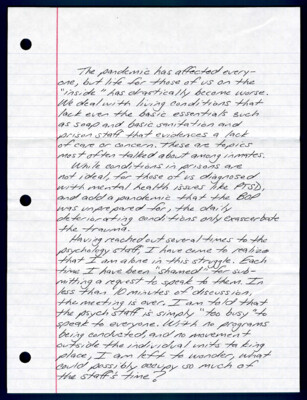 The pandemic has affected every-
one, but life for those of us on the
"inside" has drastically become worse.
We deal with living conditions that
lack even the basic essentials such
as soap and basic sanitation and
prison staff that evidences a lack
of care or concern. These are topics
most often talked about among inmates.
While conditions in prisons are
not ideal, for those of us diagnosed
with mental health issues like PTSD,
and add a pandemic that the BOP
was unprepared for, the daily
deteriorating conditions only exacerbate
the trauma.
Having reached out several times to the
psychology staff, I have come to realize
that I am alone in this struggle. Each
time I have been "shamed" for sub-
mitting a request to speak to them. In
less than 10 minutes of discussion,
the meeting is over. I am told that
the psych staff is simply "too busy" to
speak to everyone. With no programs
being conducted and no movement
outside the individual units taking
place, I am left to wonder, what
could possibly occupy so much of
the staff's time?